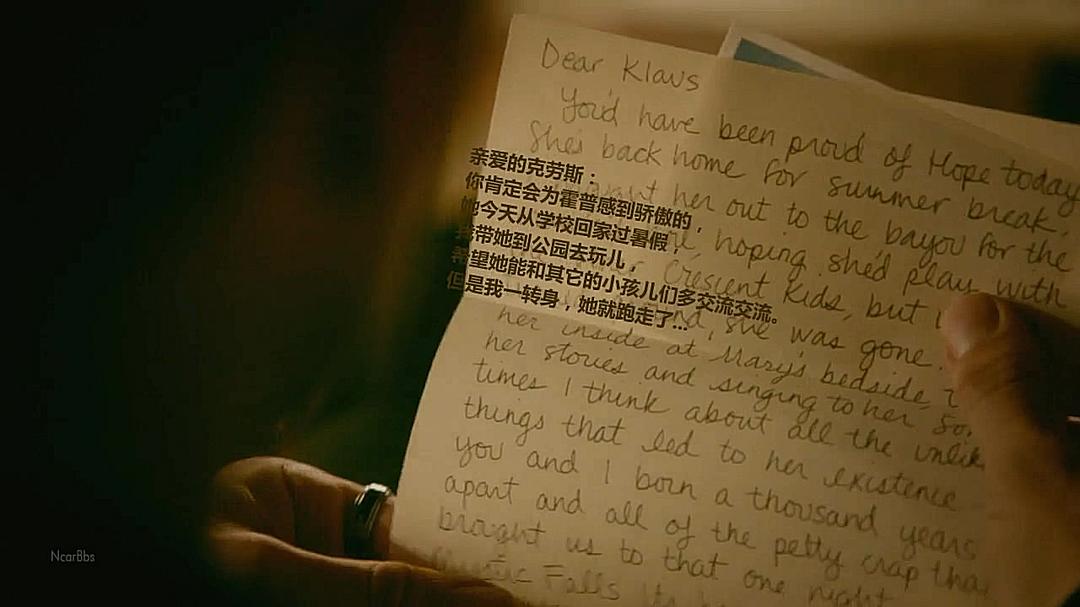 Dear Klaus
You'd have been proud of Hope today
She's back home for summer break.
her out to the bayou for the
hoping she'd play with
Crescent Kids, but I
she was gone.
her inside at Mary's bedside,
her stories and singing to her. So
times I think about all the unlik
things that led to her existence
you and I born a thousand years
apart and all of the petty crap tha
brought us to that one night
Falls
亲爱的克劳斯：
你肯定会为霍普感到骄傲的，
她今天从学校回家过暑假，
我带她到公园去玩儿，
希望她能和其它的小孩儿们多交流交流。
但是我一转身，她就跑走了...
NcarBbs